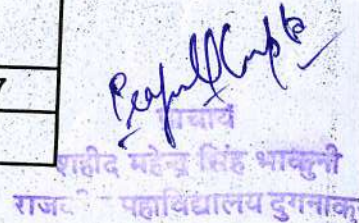 7
प्राचार्य
शहीद महेन्द्र सिंह भाकुनी
महाविद्यालय दुगनाकु